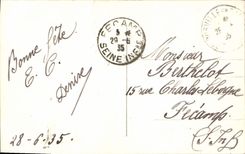 Bonne fête
E. C.
Denise
28-6-35.
FECAMP
29-6
35
SEINE INFRE
Monsieur
Berthelot
15 rue Charles Leborgne
Fécamp
(S. Inf)